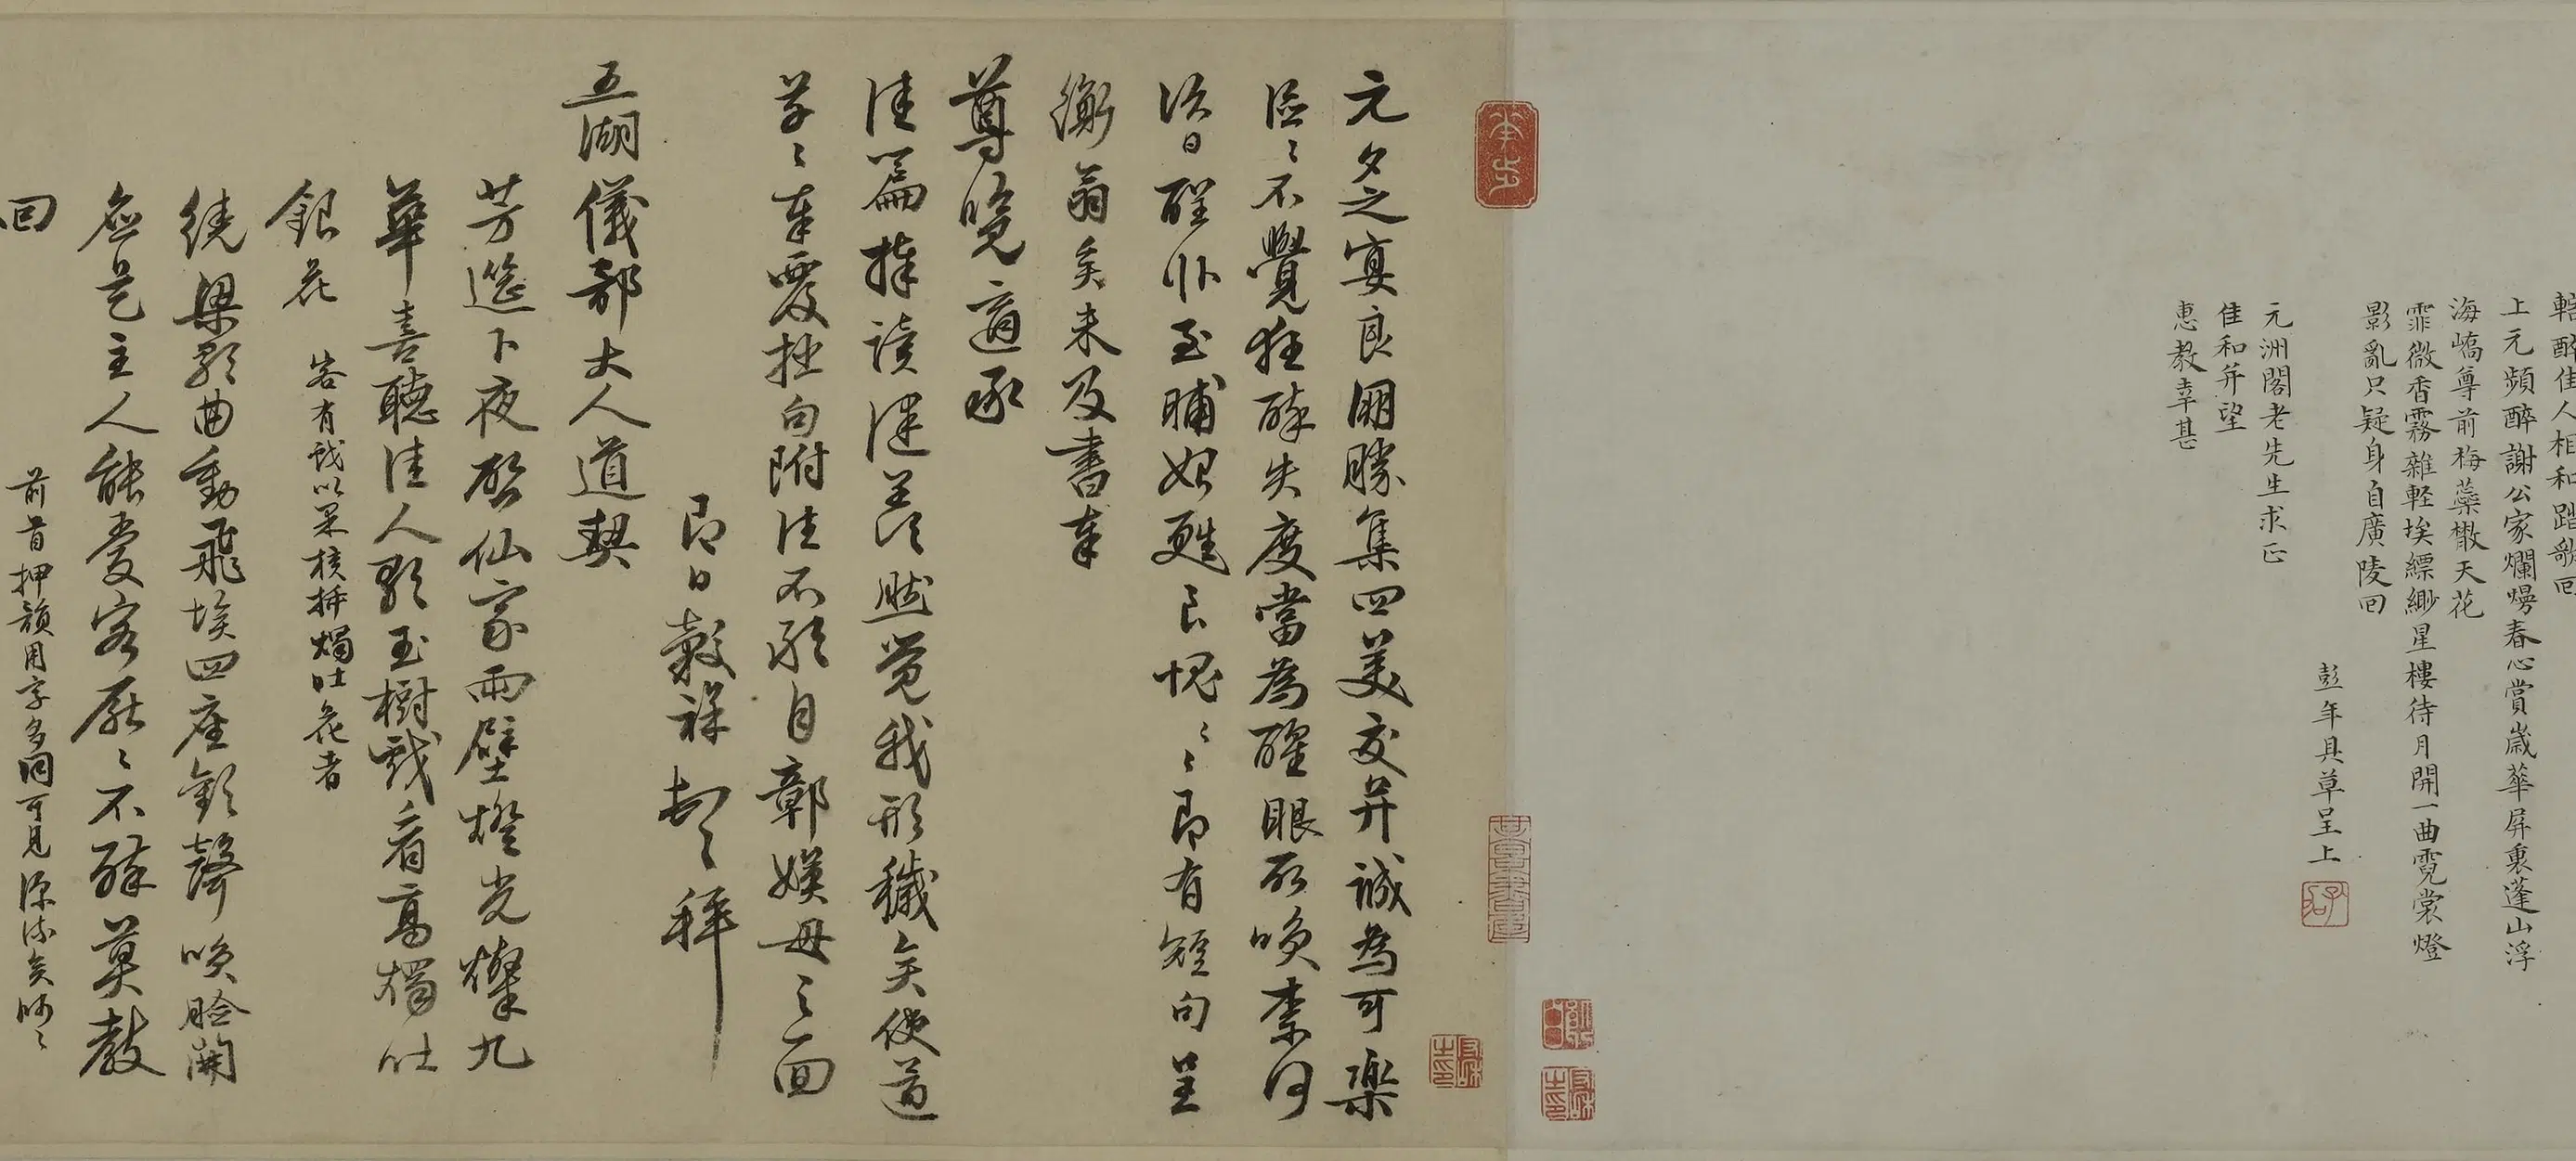 轄醉佳人相和踏歌回
上元頻醉謝公家爛熳春心賞歲華屏裏蓬山浮
海嶠尊前梅蘂散天花
霏微香霧雜軽埃縹緲星樓待月開一曲霓裳燈
影亂只疑身自廣陵回
彭年具草呈上
元洲閣老先生求正
佳和并望
惠教幸甚
元夕之宴良朋勝集四美交并誠為可樂
区々不覺狂醉失度當為醒眼所唤柰何
次日醒卧至晡始甦良愧々々即有短句呈
衡翁矣未及書奉
尊覽適承
佳篇捧讀達羨眺覺我形穢矣使道
草々奉覆拙句附往不願自彰嫫母之面
即日穀祥 拜
五湖儀部大人道契
芳筵卜夜啓仙家兩壁燈光燦九
華喜聽佳人歌玉樹戲看高燭吐
銀花 客有戲以果核抨燭吐花者
繞梁歌曲動飛埃四座歡聲喚臉開
應是主人能愛客厭々不醉莫教
回
前首押韻用字多同可見